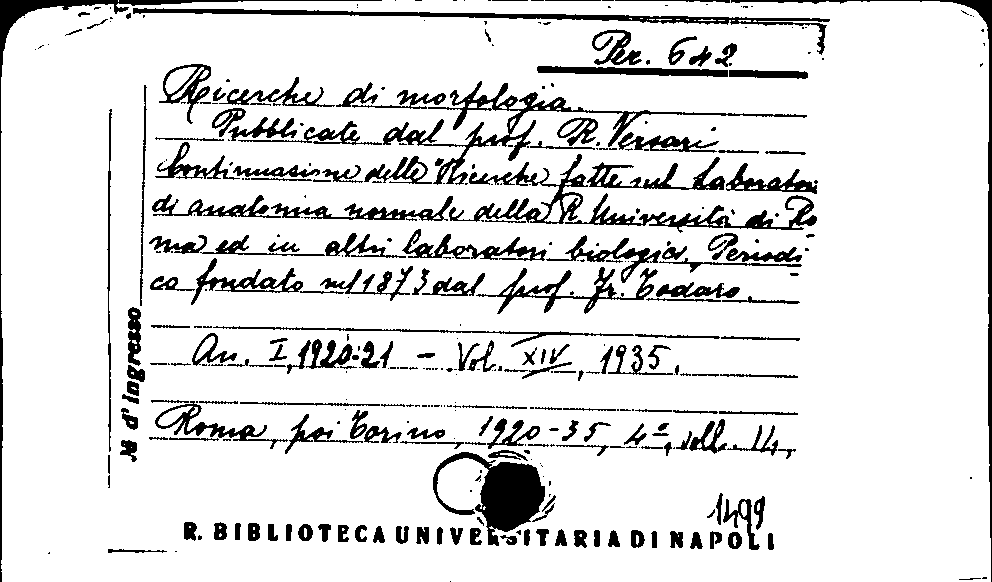 Per. 642
Ricerche di morfologia.
Pubblicate dal prof. R. Versari
Continuazione delle "Ricerche fatte nel Laboratori
di anatomia normale della R. Università di Ro
ma ed in altri laboratori biologici, Periodi
co fondato nel 1873 dal prof. Fr. Todaro.
An. I, 1920-21 – Vol. XIV, 1935.
Roma, poi Torino, 1920-35, 4º, voll. 14,
1499
R. BIBLIOTECA UNIVERSITARIA DI NAPOLI
№ d'ingresso